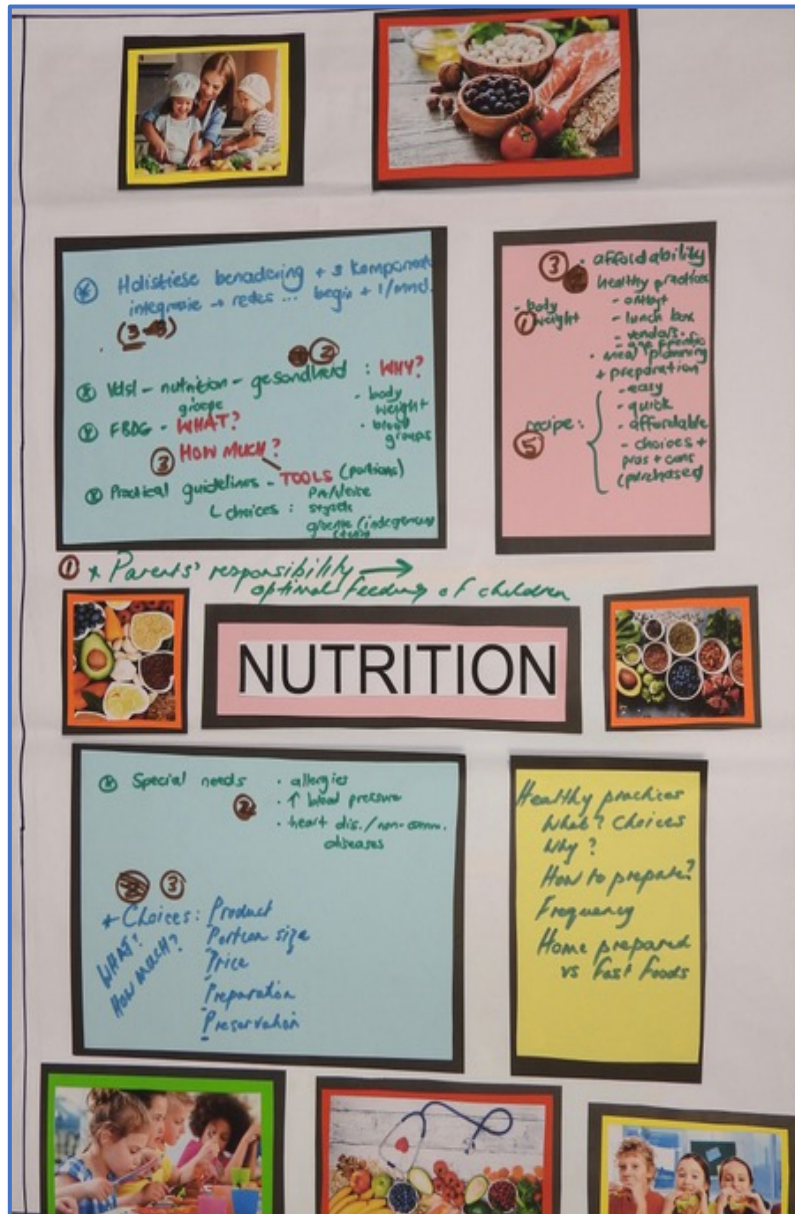 Holistiese benadering + 3 Komponente
integrasie → redes ... begin + 1/mnd.
②
Vdsl - nutrition - gesondheid : WHY?
groepe
• body
weight
• blood
groups
FBDG - WHAT?
③ HOW MUCH?
Practical guidelines - TOOLS (portions)
choices :
③ • affordability
healthy practices
- ontbyt
- lunch box
- vendors
- age specific
- body
① weight
• meal planning
+ preparation
- easy
- quick
- affordable
- choices +
pros + cons
(purchased)
recipe:
⑤
① * Parents' responsibility →
optimal feeding of children
NUTRITION
Special needs
• allergies
• ↑ blood pressure
• heart dis./non-comm.
diseases
②
③
* Choices: Product
Portion size
Price
Preparation
Preservation
WHAT?
HOW MUCH?
Healthy practices
What? Choices
Why?
How to prepare?
Frequency
Home prepared
vs Fast Foods